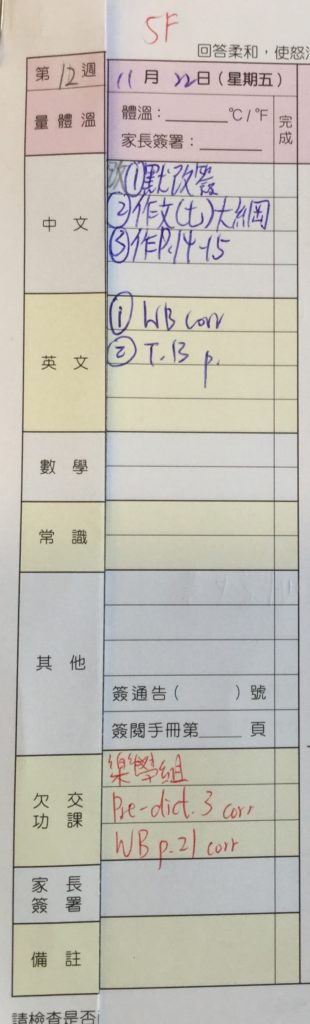 5F
回答柔和，使怒
第12週 11月22日（星期五）
量體溫 體溫：______℃/℉ 完成
家長簽署：______
中文 ①默改簽
②作文(七)大綱
③作P.14-15
英文 ① WB corr
② T.B p.
數學
常識
其他
簽通告（ ）號
簽閱手冊第____頁
欠交功課 樂學組
Pre-dict. 3 corr
WB p.21 corr
家長簽署
備註
請檢查是否